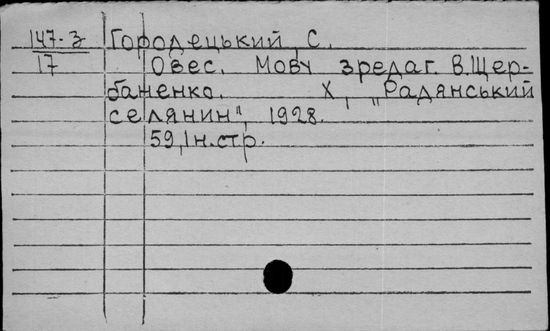 147-з Городецький, С.
17 Овес. Мову зредаг. В.Щер-
баненко. Х, „Радянський
селянин", 1928.
59,1н.стр.